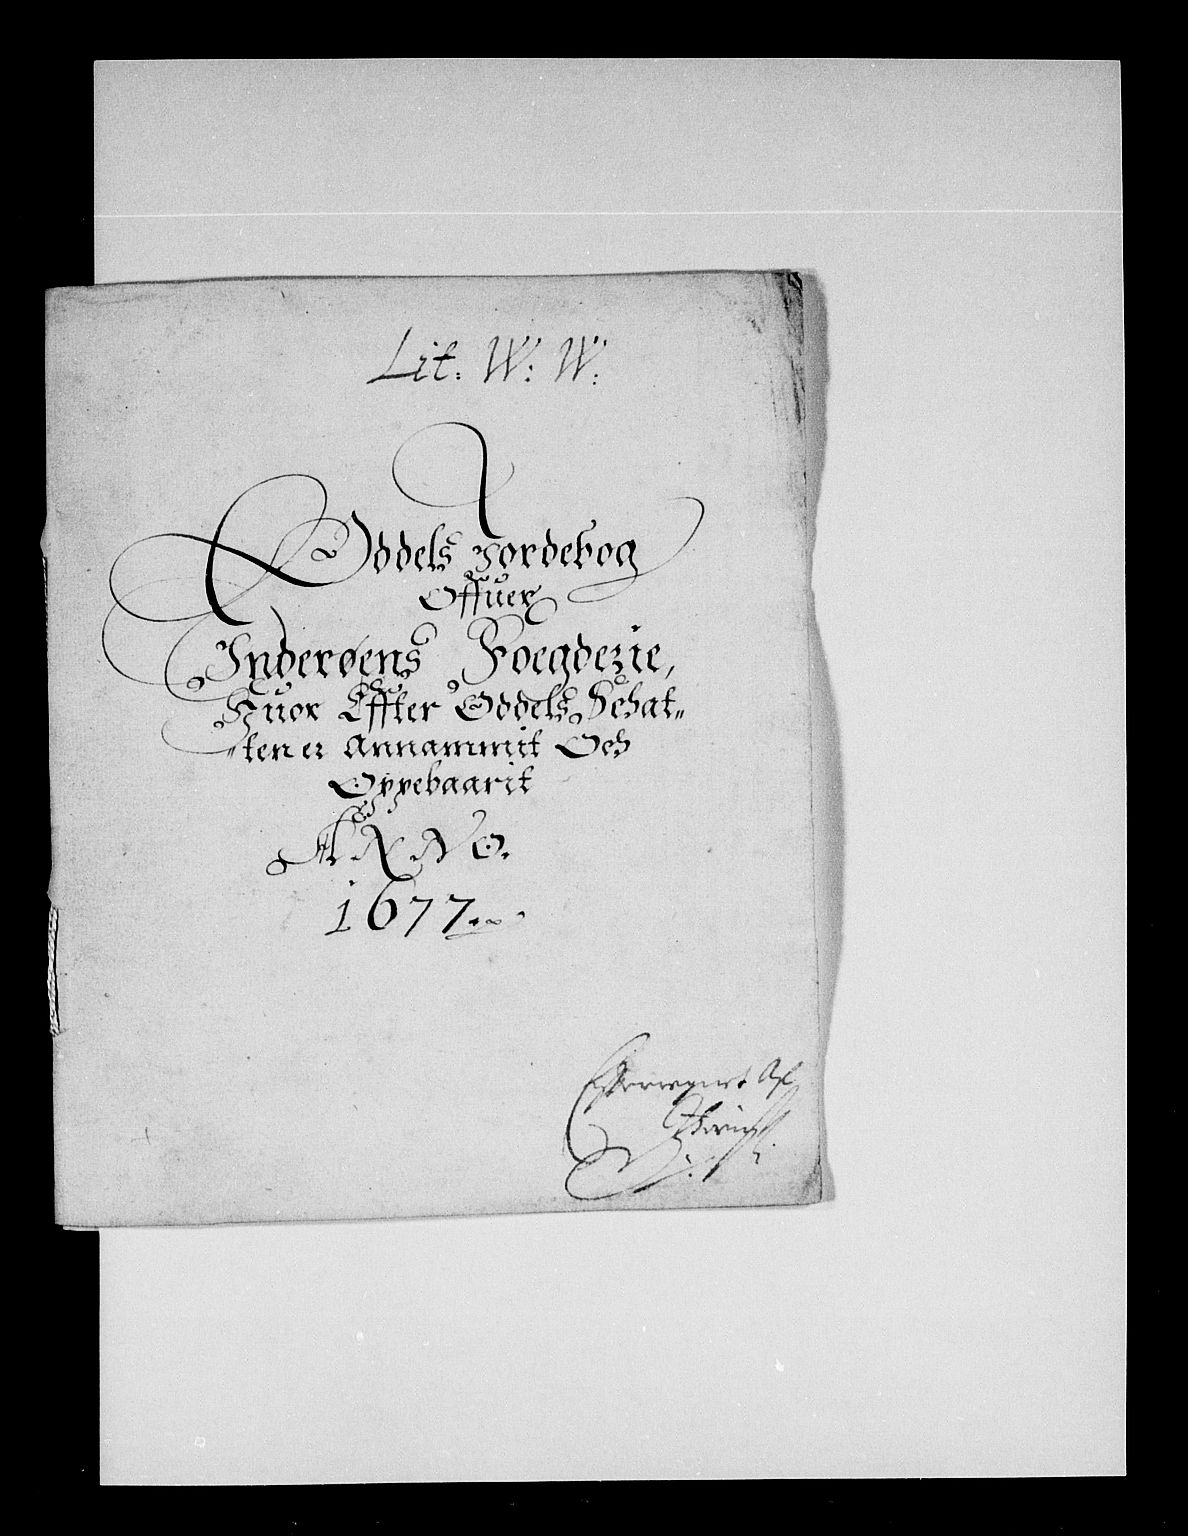 Lit: W: W:
Oddels Jordebog
Offuer
Inderøens Foegderie,
Huor Effter Oddels Schat„
„ten er Annammit Och
Oppebaarit
ANNO.
1677
Efterregnet Af